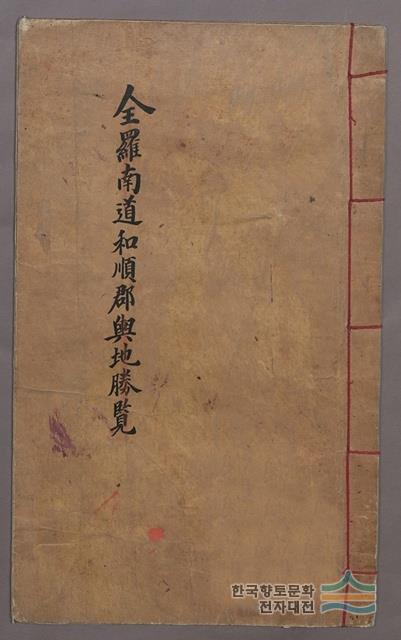 全羅南道和順郡輿地勝覽
한국향토문화
전자대전